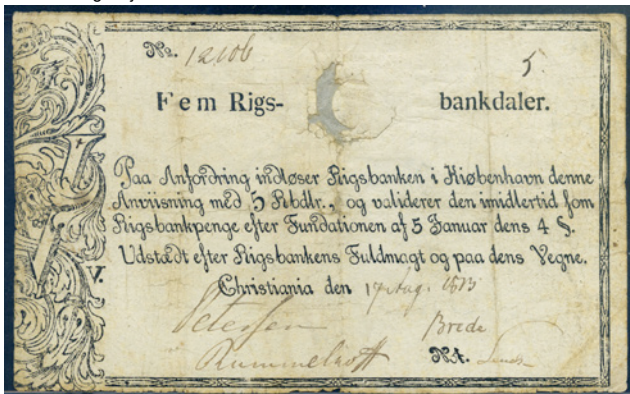 No. 12106 5.
Fem Rigs- bankdaler.
Paa Anfordring indløser Rigsbanken i Kiøbenhavn denne
Anviisning med 5 Rbdlr., og validerer den imidlertid som
Rigsbankpenge efter Fundationen af 5 Januar dens 4 §.
Udstædt efter Rigsbankens Fuldmagt og paa dens Vegne.
V.
Christiania den 17 Aug. 1813
Petersen Brede
Rummelhoff Nt.